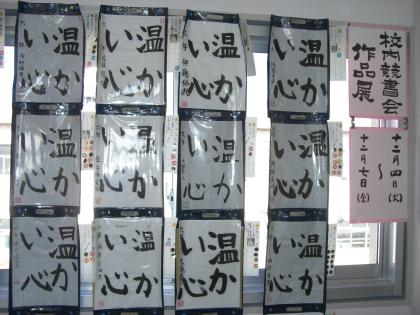 校内競書会
作品展
十二月四日(火)
〜
十二月七日(金)
温か
い心
温か
い心
温か
い心
温か
い心
温か
い心
温か
い心
温か
い心
温か
い心
温か
い心
温か
い心
温か
い心
温か
い心